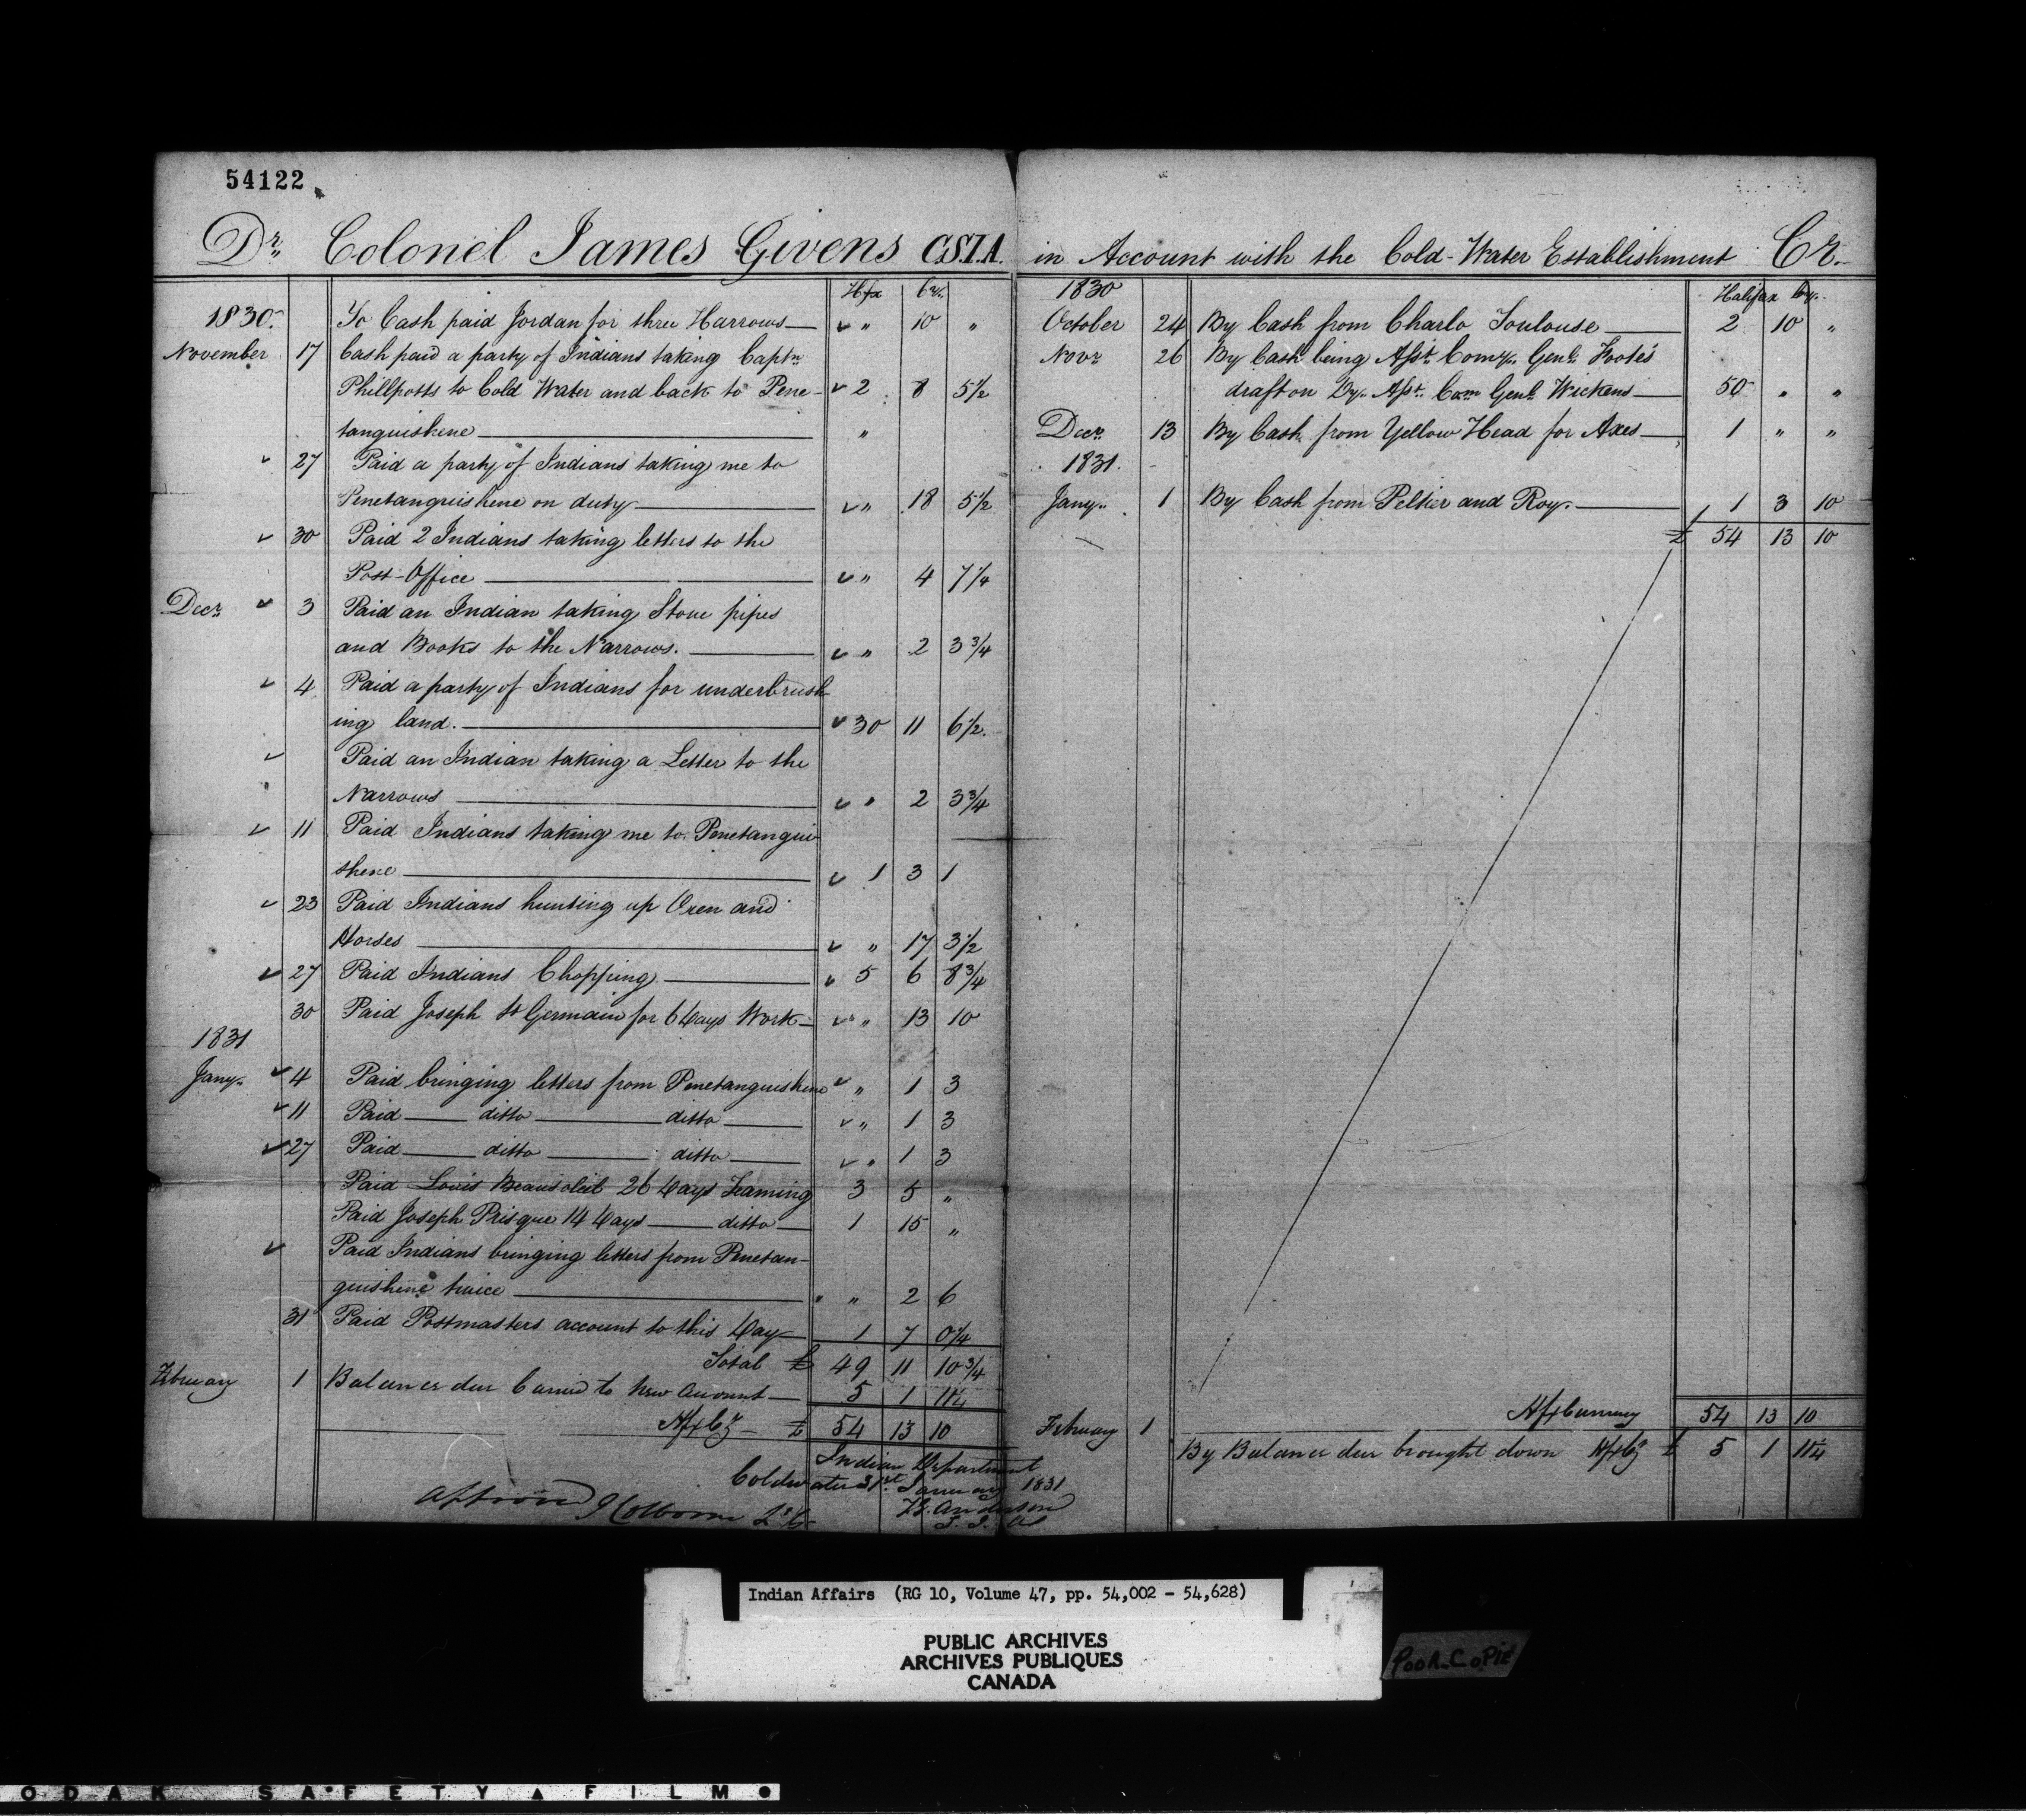 54122
Dr. Colonel James Givens C.S.I.A.
Hfx Cy.
1830. To Cash paid Jordan for three Harrows — " 10 "
November 17 Cash paid a party of Indians taking Captn
Phillpotts to Cold Water and back to Pene- 2 8 5 1/2
tanguishene — "
27 Paid a party of Indians taking me to
Penetanguishene on duty — " 18 5 1/2
30 Paid 2 Indians taking letters to the
Post-Office — " 4 7 1/4
Decr. 3 Paid an Indian taking Stove pipes
and Books to the Narrows. — " 2 3 3/4
4 Paid a party of Indians for underbrush
ing land. — 30 11 6 1/2
Paid an Indian taking a Letter to the
Narrows — " 2 3 3/4
11 Paid Indians taking me to Penetangui
shene — 1 3 1
23 Paid Indians hunting up Oxen and
Horses — " 17 3 1/2
27 Paid Indians Chopping — 5 6 8 3/4
30 Paid Joseph St Germain for 6 days Work — " 13 10
1831
Jany. 4 Paid bringing letters from Penetanguishene " 1 3
11 Paid — ditto — ditto — " 1 3
27 Paid — ditto — ditto — " 1 3
Paid Louis Beausoleil 26 days Teaming 3 5 "
Paid Joseph Prisque 14 days — ditto — 1 15 "
Paid Indians bringing letters from Penetan-
guishene twice — " " 2 6
31 Paid Postmasters account to this day — 1 7 0 1/4
Total £ 49 11 10 3/4
February 1 Balance due Carried to New Account — 5 1 11 1/4
Hfx Cy — £ 54 13 10
Indian Department
Coldwater 31st January 1831
T.G. Anderson
S. I. A
Approved J Colborne
in Account with the Cold-Water Establishment Cr.
1830 Halifax Cy.
October 24 By Cash from Charlo Toulouse — 2 10 "
Novr 26 By Cash being Asst. Comy. Genl. Foote's
draft on Dy. Asst. Com Genl. Wickens — 50 " "
Decr. 13 By Cash from Yellow Head for Axes — 1 " "
1831.
Jany. 1 By Cash from Peltier and Roy. — 1 3 10
£ 54 13 10
Hfx Currency 54 13 10
February 1
By Balance due brought down Hfx Cy £ 5 1 11 1/4
Indian Affairs (RG 10, Volume 47, pp. 54,002 - 54,628)
PUBLIC ARCHIVES
ARCHIVES PUBLIQUES
CANADA
POOR COPIE
ODAK SAFETY FILM